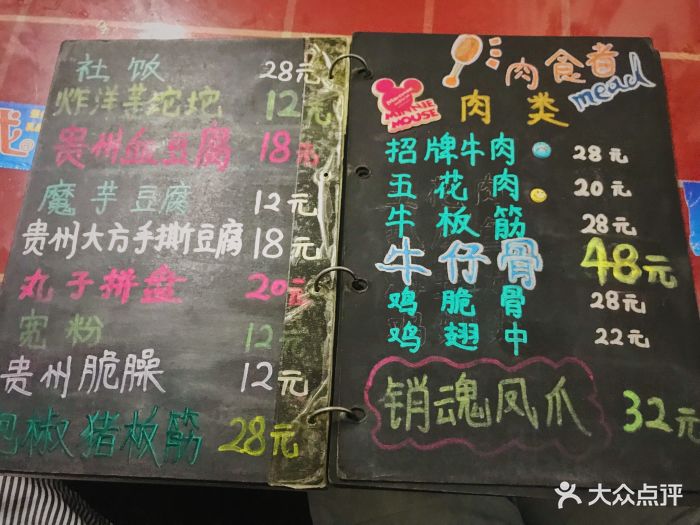 社饭 28元
炸洋芋坨坨 12元
贵州血豆腐 18元
魔芋豆腐 12元
贵州大方手撕豆腐 18元
丸子拼盘 20元
宽粉 12元
贵州脆臊 12元
泡椒猪板筋 28元
肉食者
mead
MINNIE
MOUSE
肉类
招牌牛肉 28元
五花肉 20元
牛板筋 28元
牛仔骨 48元
鸡脆骨 28元
鸡翅中 22元
销魂凤爪 32元
大众点评